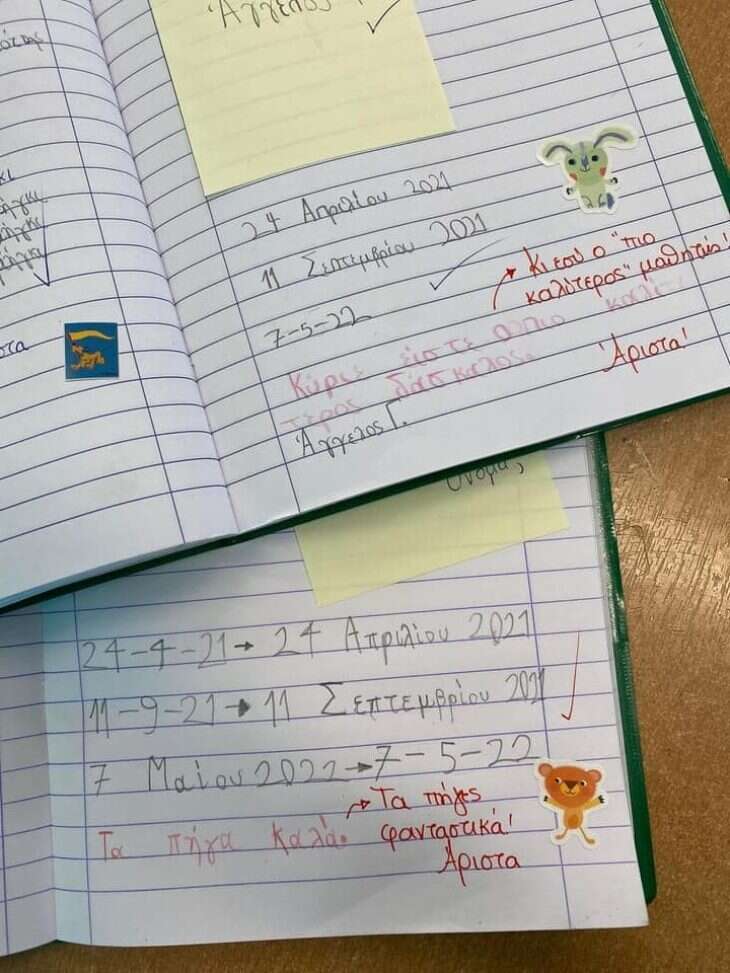 Άγγελος
24 Απριλίου 2021
11 Σεπτεμβρίου 2021
7-5-22
Κι εσύ ο "πιο
καλύτερος" μαθητής!
Κύριε είστε ο πιο καλί
τερος δάσκαλος
Άριστα!
Άγγελος Γ.
Όνομα,
24-4-21→ 24 Απριλίου 2021
11-9-21→ 11 Σεπτεμβρίου 2021
7 Μαΐου 2022→7-5-22
Τα πήγα καλά.
Τα πήγες
φανταστικά!
Άριστα